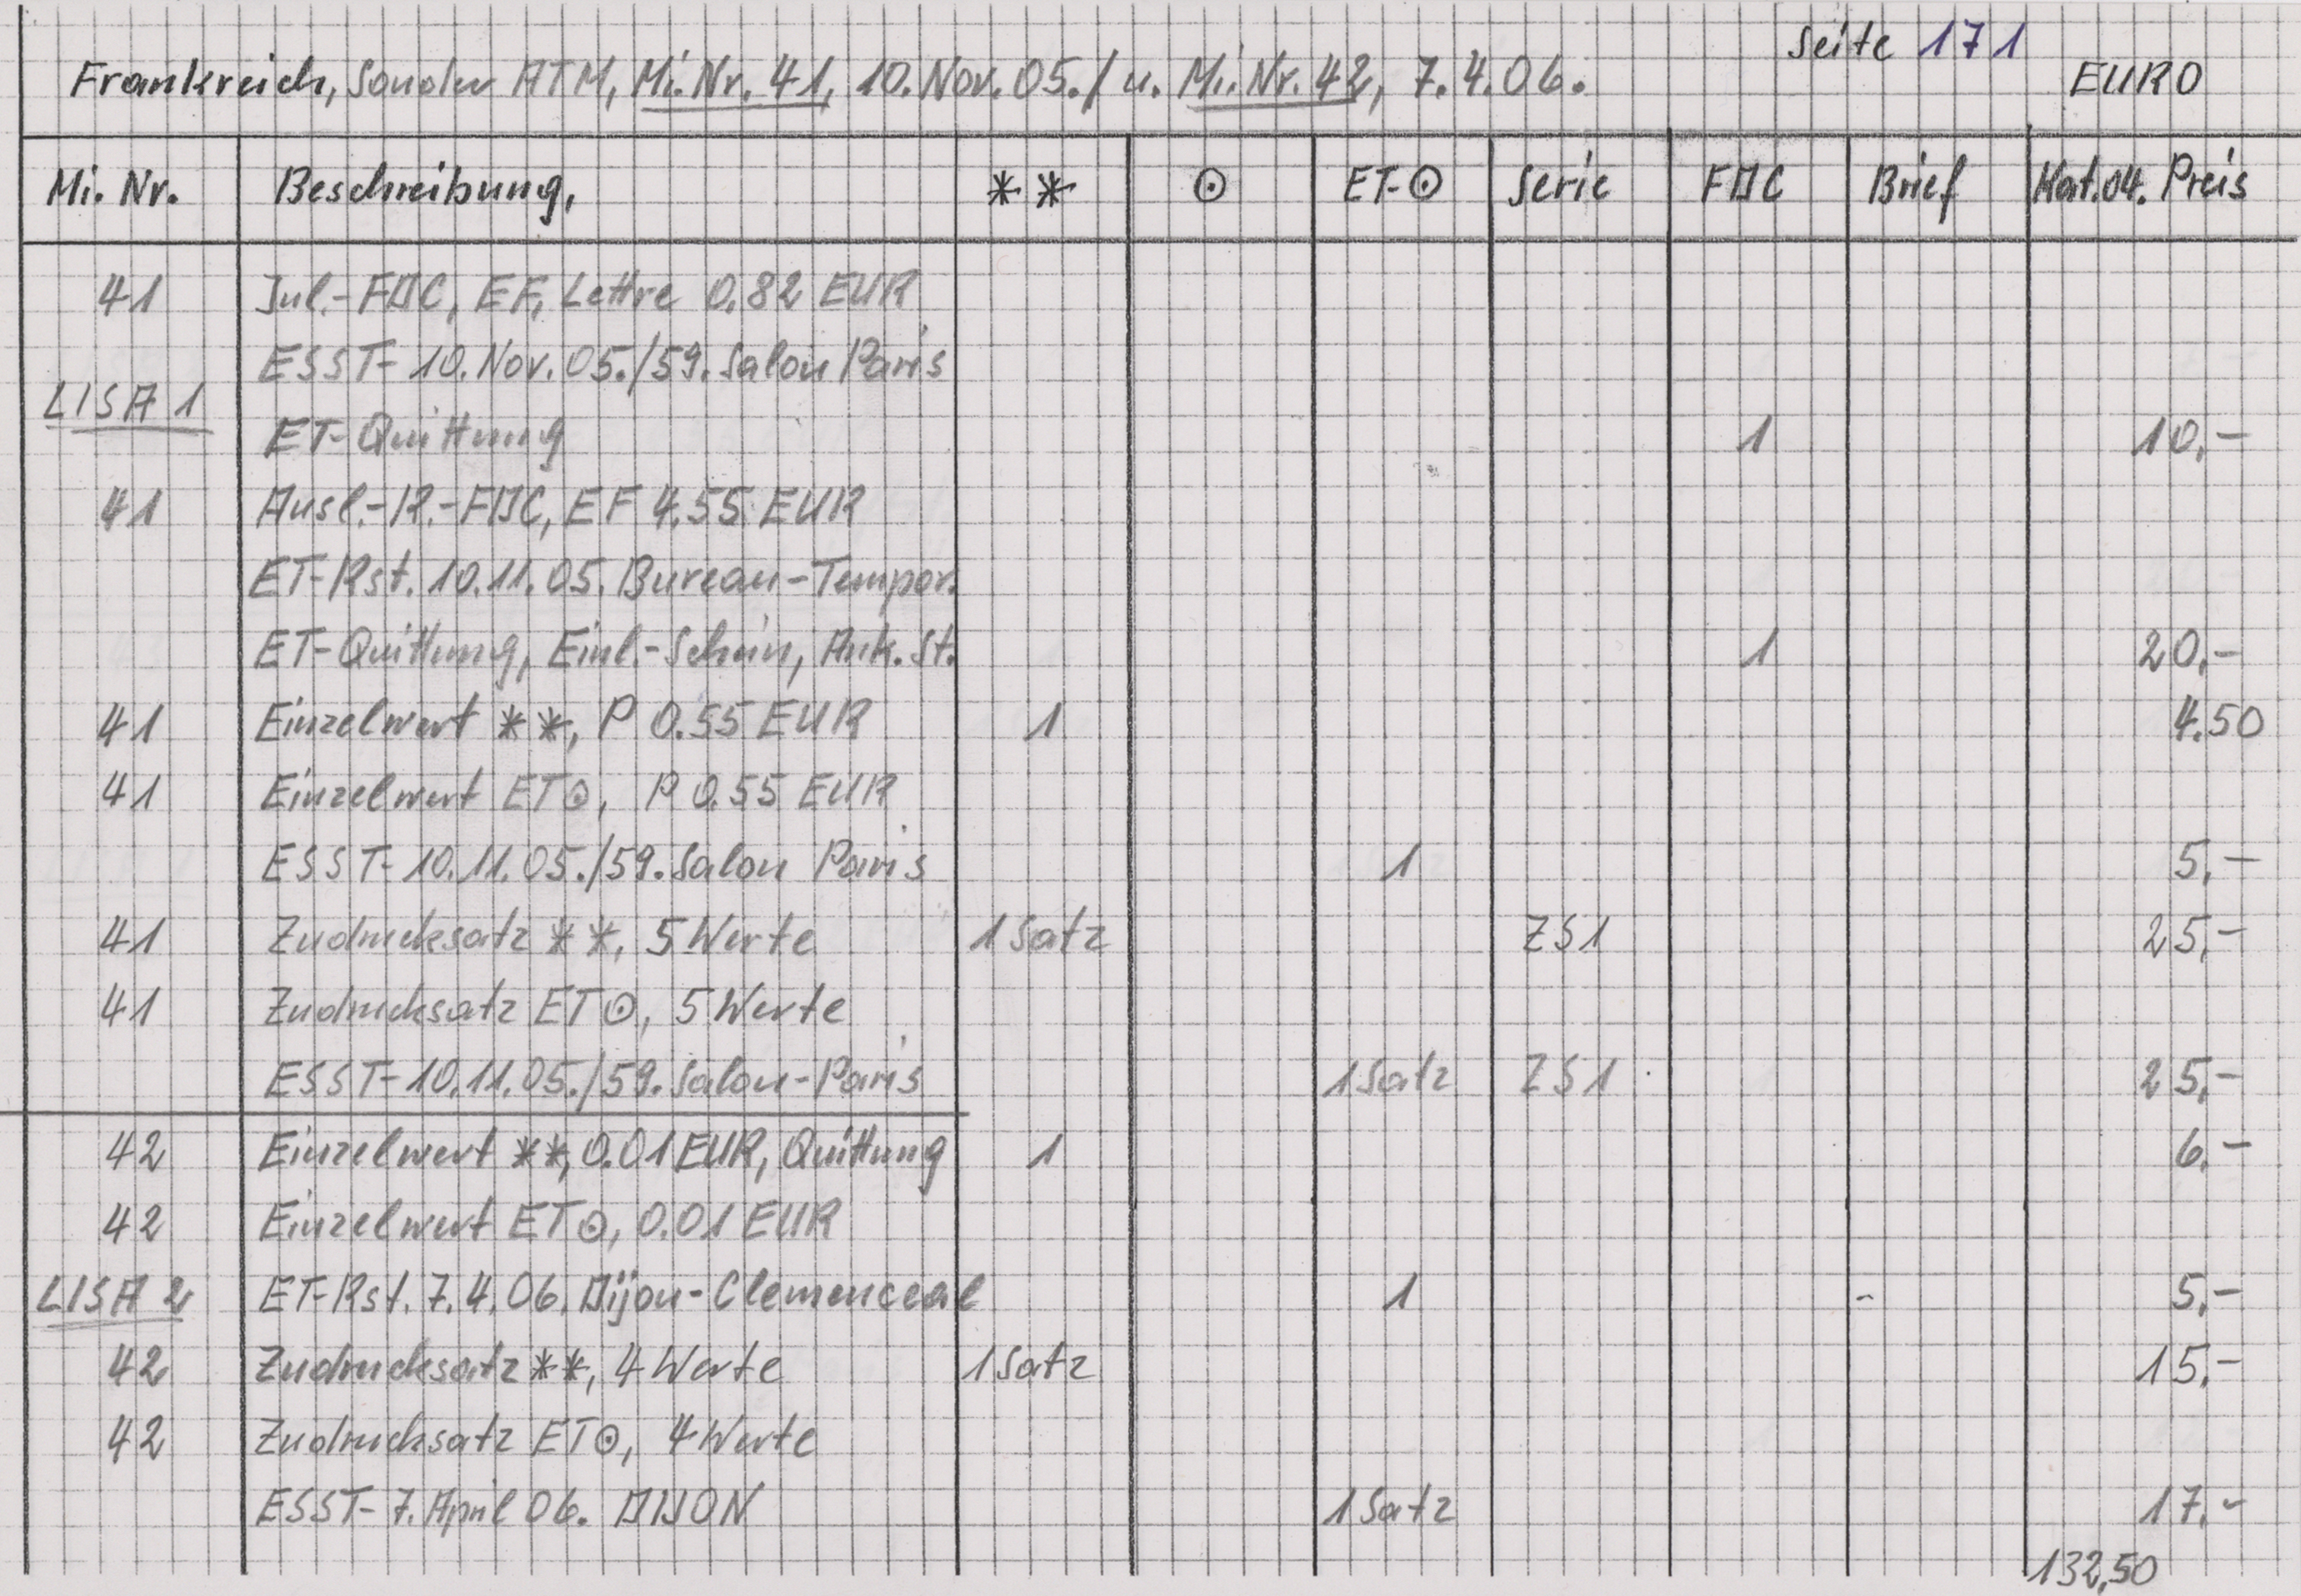 Seite 171
Frankreich, Sonder ATM, Mi.Nr. 41, 10.Nov.05./ u. Mi.Nr.42, 7.4.06. EURO
Mi. Nr. Beschreibung, ** ⊙ ET-⊙ Serie FDC Brief Kat.04. Preis
41 Inl.-FDC, EF, Lettre 0,82 EUR
ESST- 10.Nov.05./59.Salon Paris
LISA 1
ET-Quittung 1 10,-
41 Ausl.-R.-FDC, EF 4.55 EUR
ET-Rst. 10.11.05. Bureau-Tempor.
ET-Quittung, Einl.-Schein, Ank.St. 1 20,-
41 Einzelwert **, P 0.55 EUR 1 4.50
41 Einzelwert ET⊙, P 0.55 EUR
ESST-10.11.05./59.Salon Paris 1 5,-
41 Zudrucksatz **, 5 Werte 1 Satz ZS1 25,-
41 Zudrucksatz ET⊙, 5 Werte
ESST-10.11.05./59.Salon-Paris 1 Satz ZS1 25,-
42 Einzelwert **, 0.01 EUR, Quittung 1 6,-
42 Einzelwert ET⊙, 0.01 EUR
LISA 2 ET-Rst. 7.4.06. Dijon-Clemenceal 1 - 5,-
42 Zudrucksatz **, 4 Werte 1 Satz 15,-
42 Zudrucksatz ET⊙, 4 Werte
ESST- 7.April 06. DIJON 1 Satz 17,-
132,50